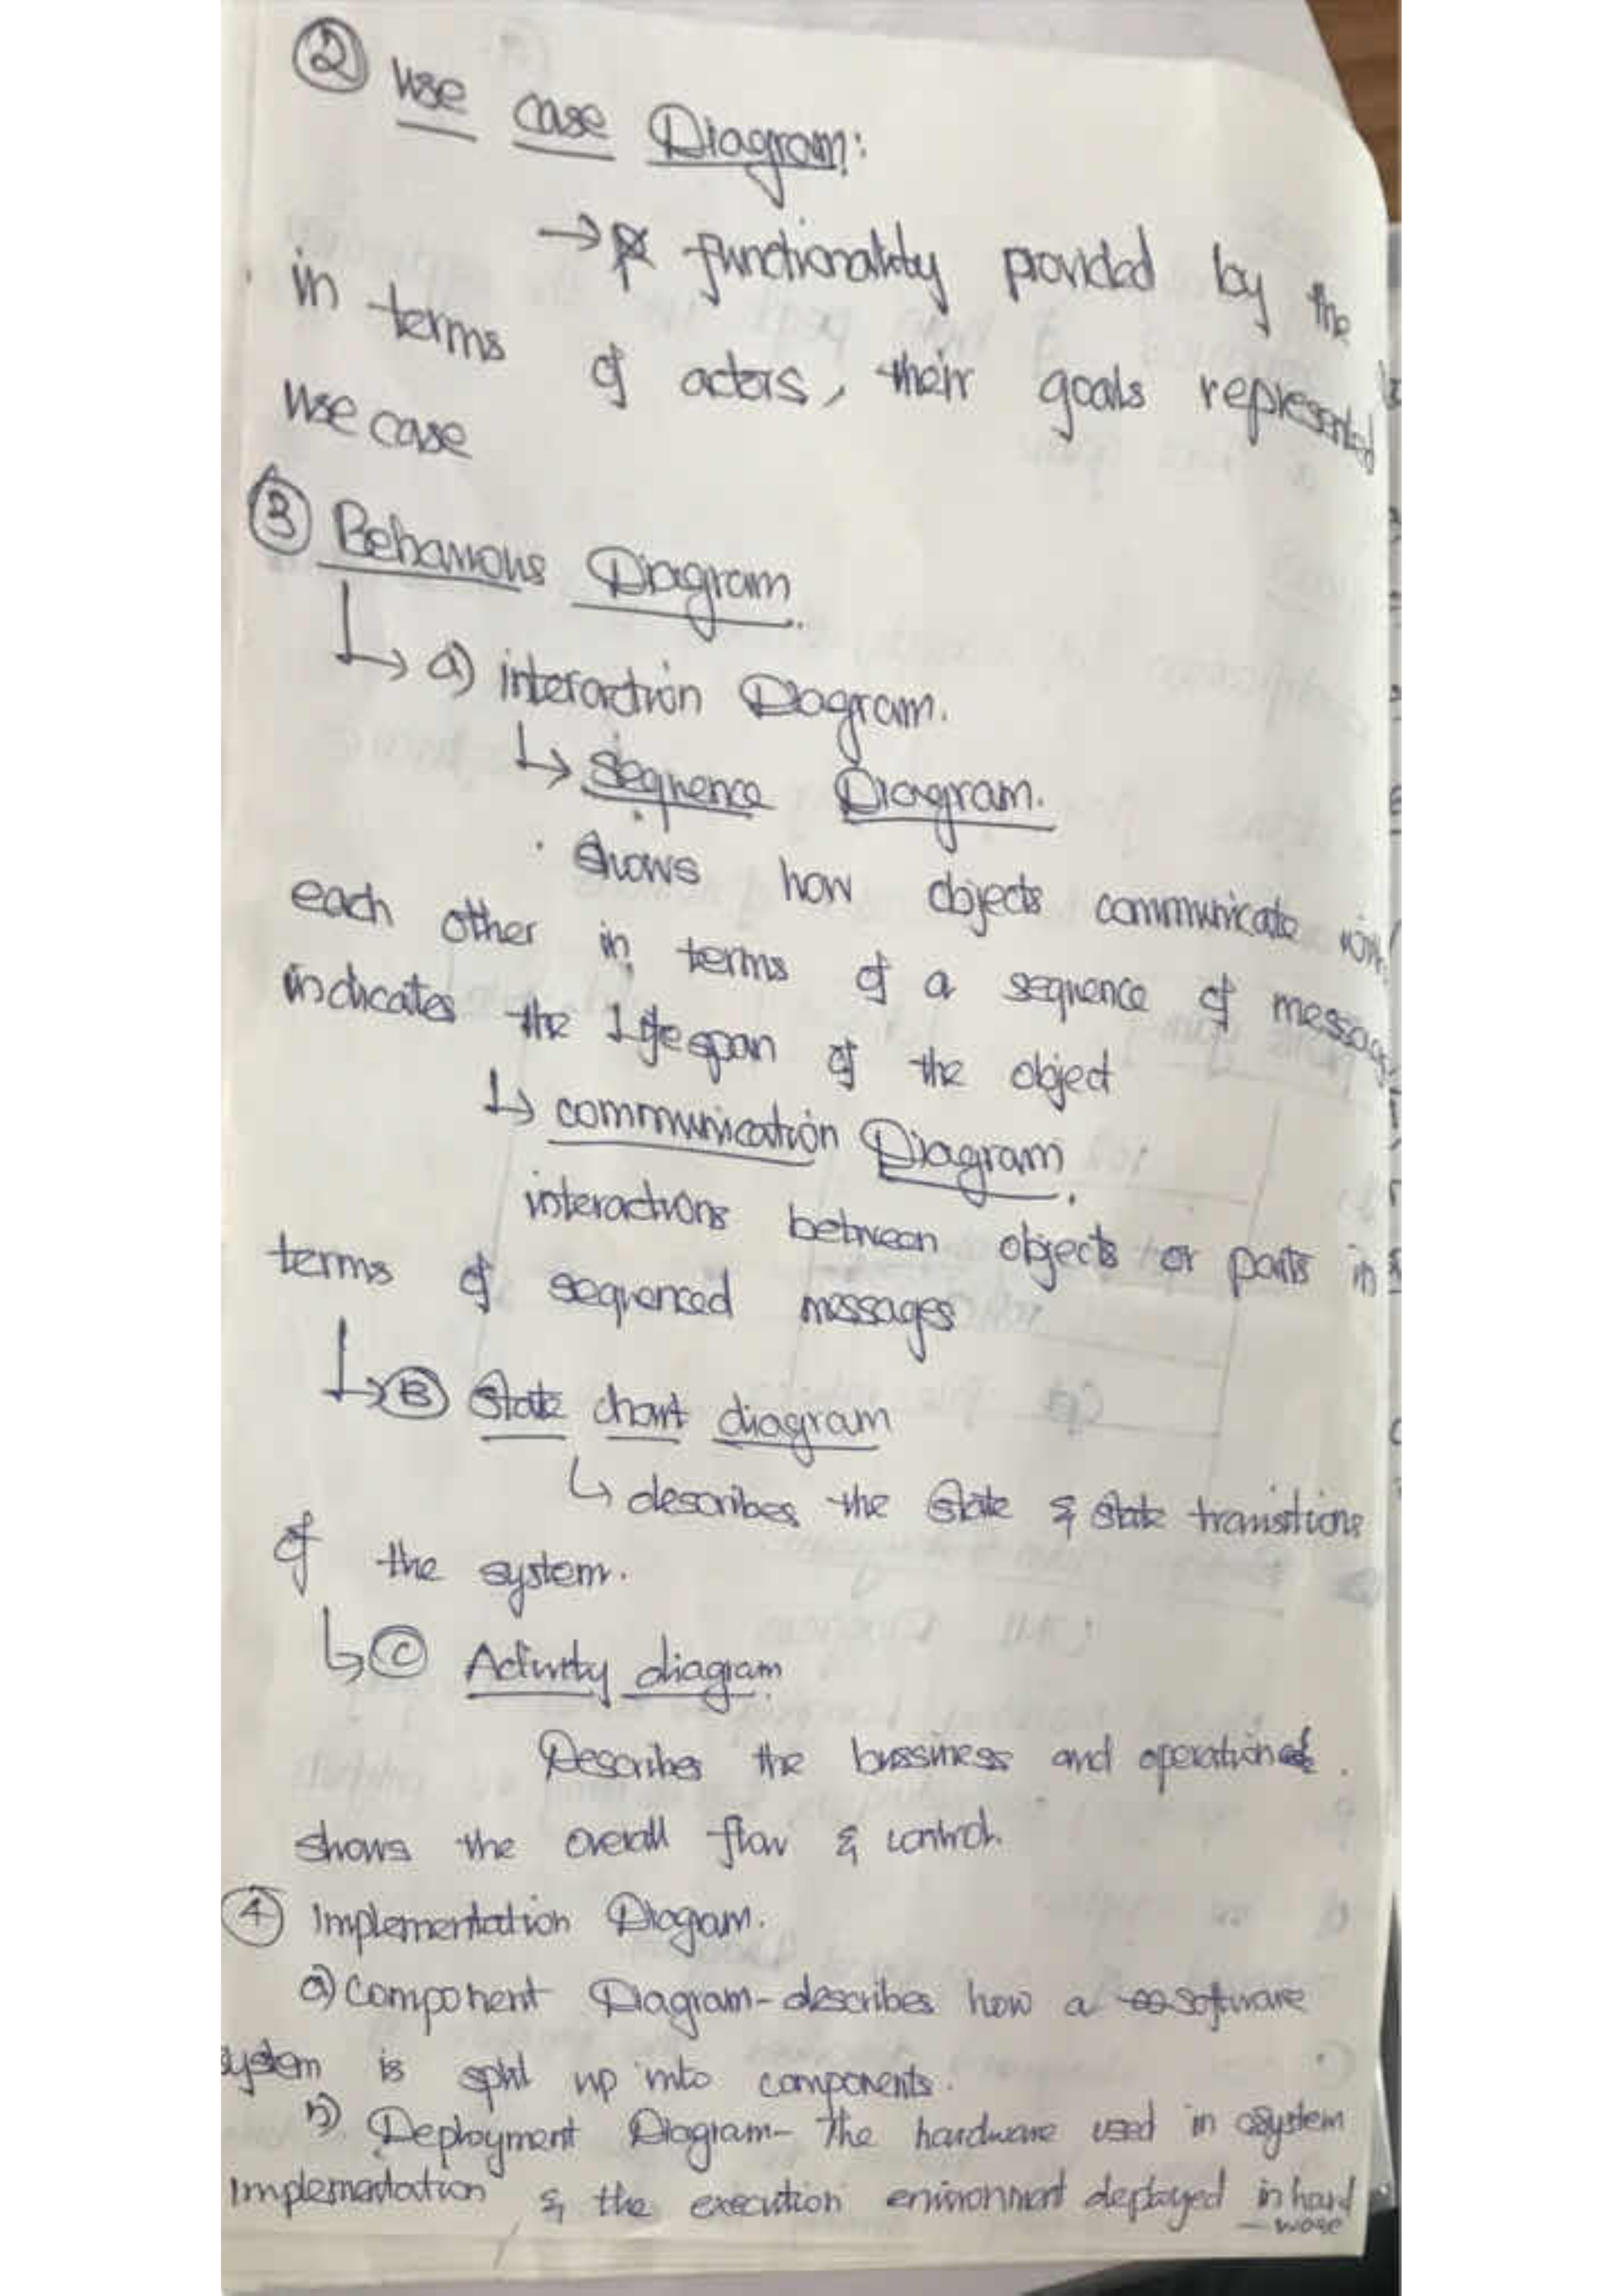 ② Use case Diagram:
→ functionality provided by the
in terms of actors, their goals represented
use case
③ Behaviours Diagram.
↳ a) interaction Diagram.
↳ Sequence Diagram.
. Shows how objects communicate
each other in terms of a sequence of
indicates the Life span of the object
↳ communication Diagram.
interactions between objects or parts in
terms of sequenced messages
↳ Ⓑ State chart diagram
↳ describes the State & State transitions
of the system.
↳ Ⓒ Activity diagram
Describes the bussiness and operational.
shows the overall flow & control.
④ Implementation Diagram.
a) Component Diagram - describes how a software
system is split up into components.
b) Deployment Diagram - The hardware used in system
Implementation & the execution environment deployed in hard
- ware